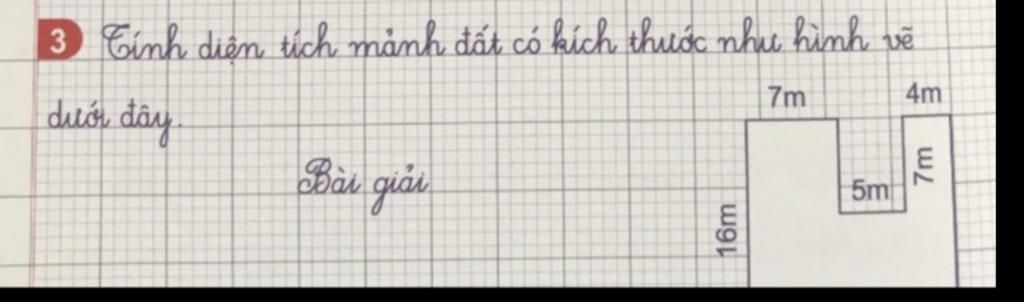 3 Tính diện tích mảnh đất có kích thước như hình vẽ
dưới đây.
Bài giải
7m
4m
7m
5m
16m